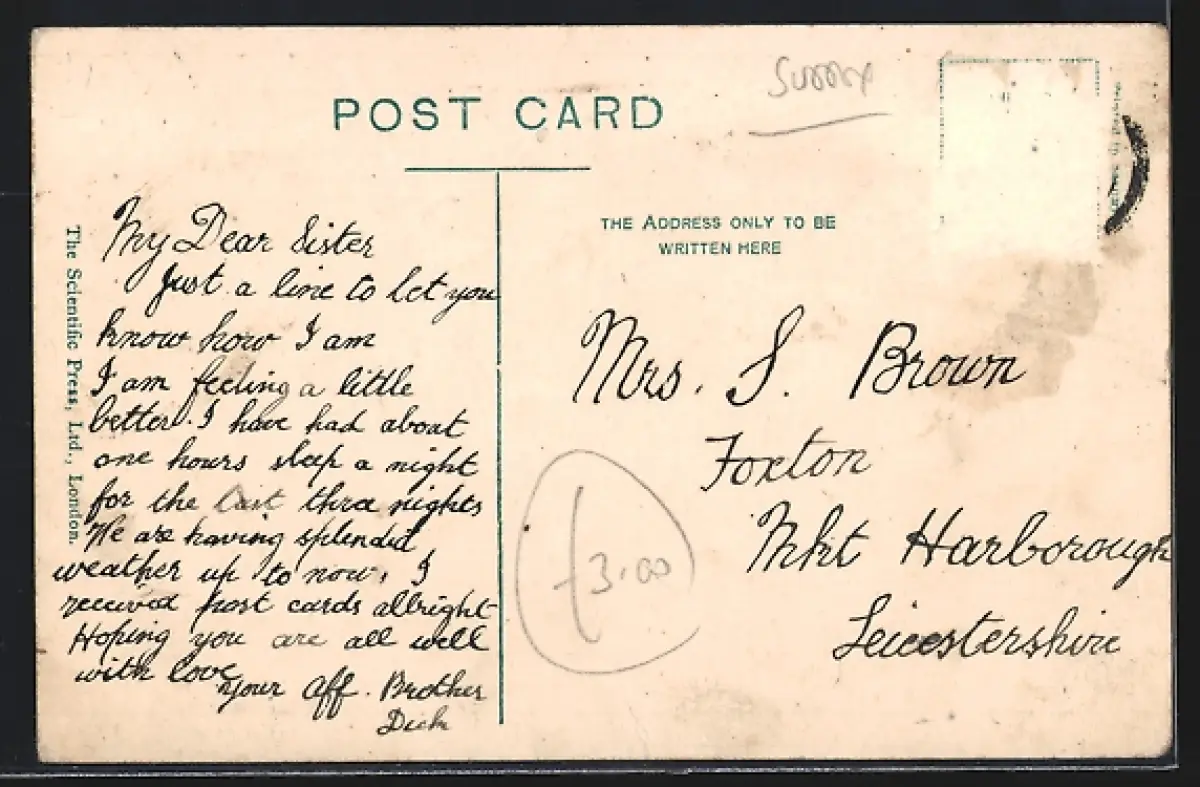 POST CARD
Surrey
THE ADDRESS ONLY TO BE
WRITTEN HERE
The Scientific Press, Ltd., London.
My Dear Sister
Just a line to let you
know how I am
I am feeling a little
better. I have had about
one hours sleep a night
for the last three nights
We are having splendid
weather up to now, I
received post cards allright
Hoping you are all well
with love
your Aff. Brother
Dick
Mrs. S. Brown
Foxton
Mkt Harborough
Leicestershire
£3.00